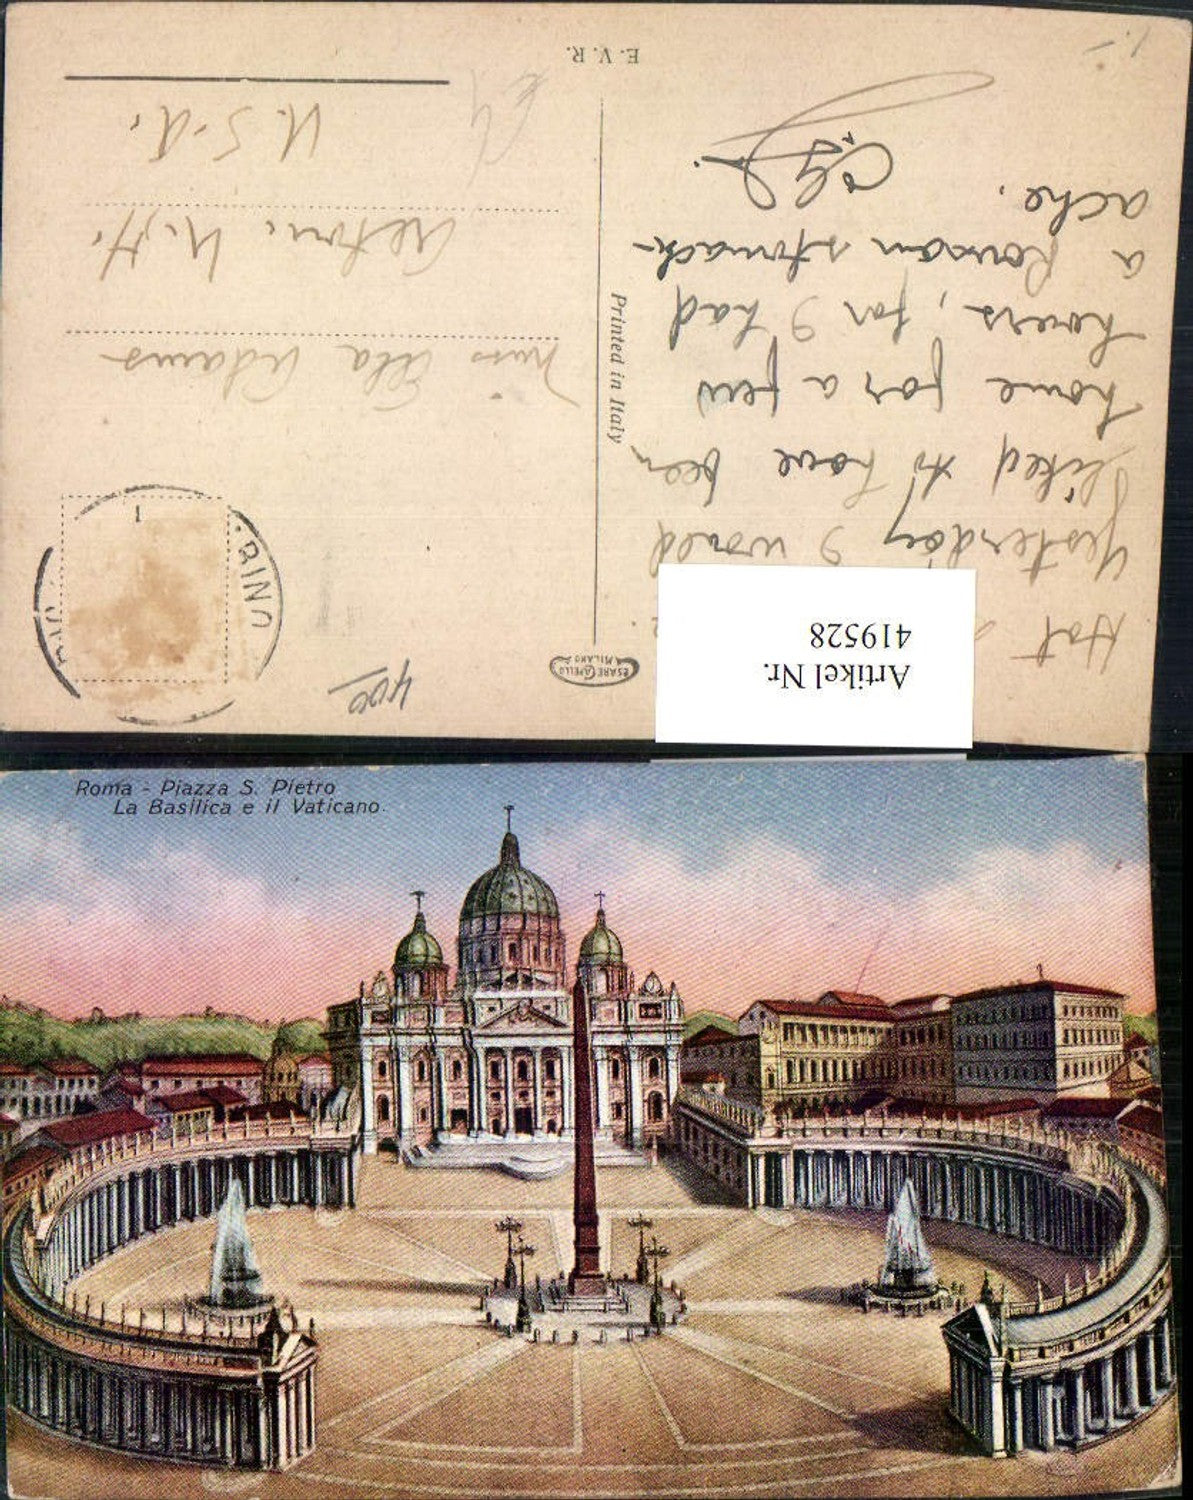 CESARE CAPELLO
MILANO
Artikel Nr.
419528
Hot
Yesterday I would
liked to have been
home for a few
hours, for I had
a Roman stomach-
ache.
Printed in Italy
400
RINO
1
Miss Ella Adams
Alton, N. H.
U. S. A.
E. V. R.
1.-
Roma - Piazza S. Pietro
La Basilica e il Vaticano.